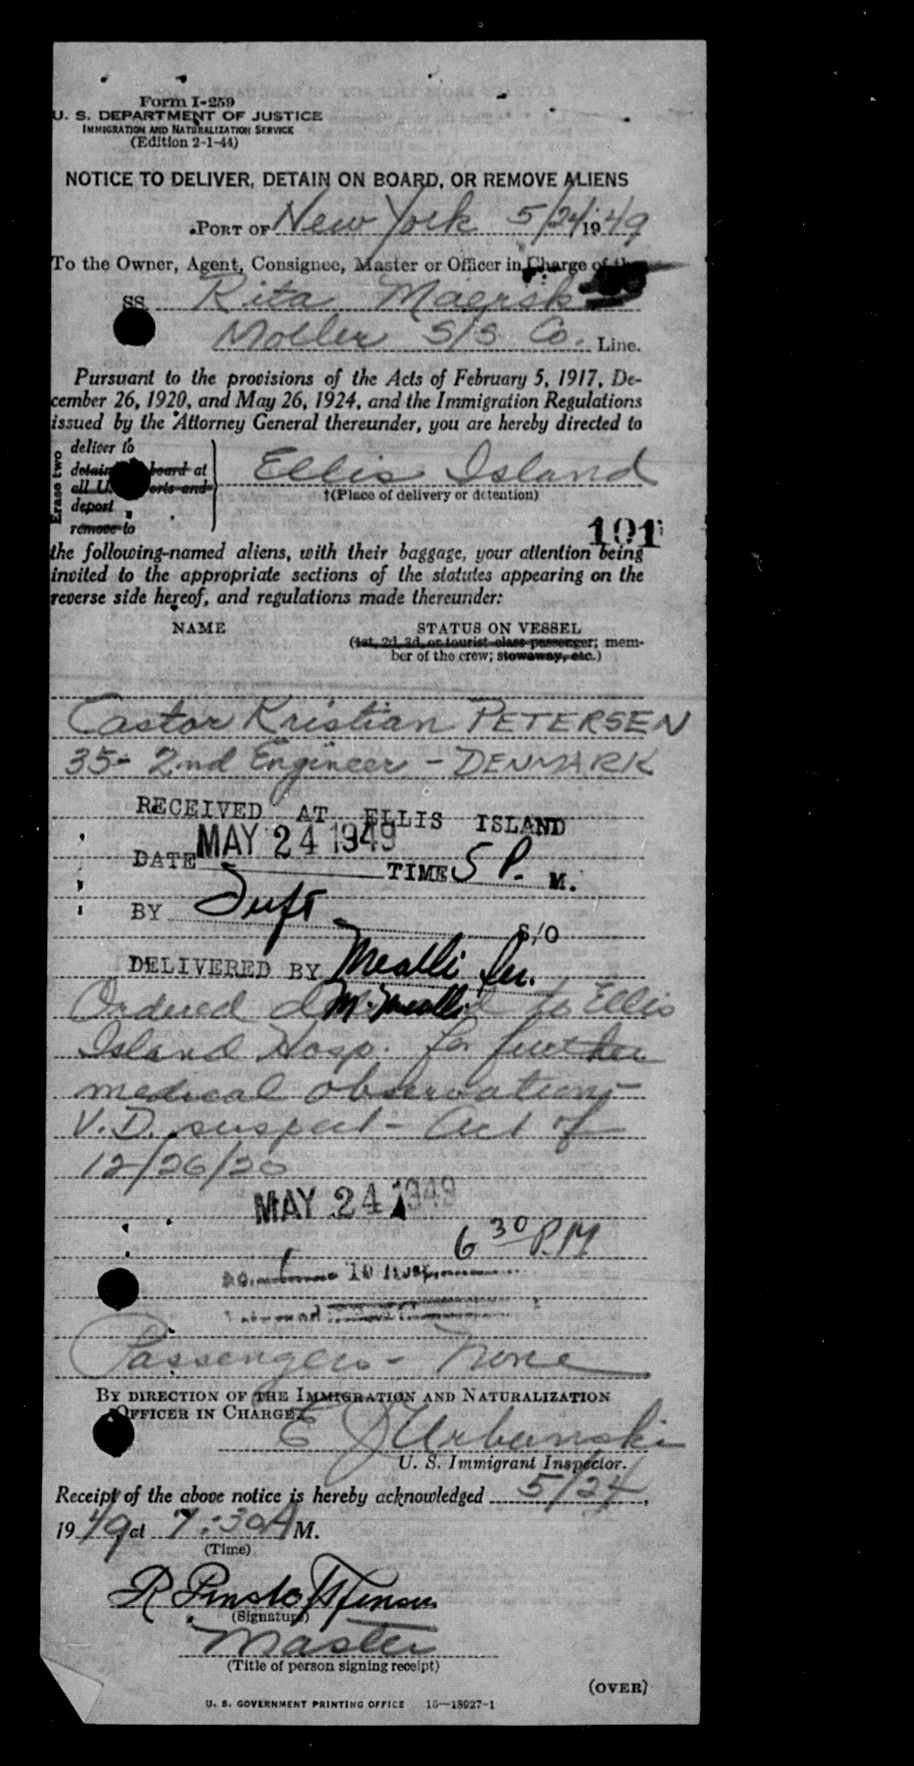 Form I-259
U. S. DEPARTMENT OF JUSTICE
IMMIGRATION AND NATURALIZATION SERVICE
(Edition 2-1-44)
NOTICE TO DELIVER, DETAIN ON BOARD, OR REMOVE ALIENS
PORT OF New York 5/24/1949
To the Owner, Agent, Consignee, Master or Officer in Charge of the
SS Rita Maersk
Moller S/S Co. Line.
Pursuant to the provisions of the Acts of February 5, 1917, De-
cember 26, 1920, and May 26, 1924, and the Immigration Regulations
issued by the Attorney General thereunder, you are hereby directed to
Erase two
deliver to
detain board at
all U. ports and
deport
remove to
Ellis Island
†(Place of delivery or detention)
101
the following-named aliens, with their baggage, your attention being
invited to the appropriate sections of the statutes appearing on the
reverse side hereof, and regulations made thereunder:
NAME STATUS ON VESSEL
(1st, 2d, 3d, or tourist class passenger; mem-
ber of the crew; stowaway, etc.)
Castor Kristian PETERSEN
35- 2nd Engineer - DENMARK
RECEIVED AT ELLIS ISLAND
DATE MAY 24 1949 TIME 5 P. M.
BY S/O
DELIVERED BY Mealli
Ordered to Ellis
Island Hosp. for further
medical observation-
V.D. suspect - Act of
12/26/20
MAY 24 1949
6 30 P.M
Passengers - None
BY DIRECTION OF THE IMMIGRATION AND NATURALIZATION
OFFICER IN CHARGE
E J Urbanski
U. S. Immigrant Inspector.
Receipt of the above notice is hereby acknowledged 5/24,
1949 at 7:30 A M.
(Time)
(Signature)
Master
(Title of person signing receipt)
(OVER)
U. S. GOVERNMENT PRINTING OFFICE 16—18927-1